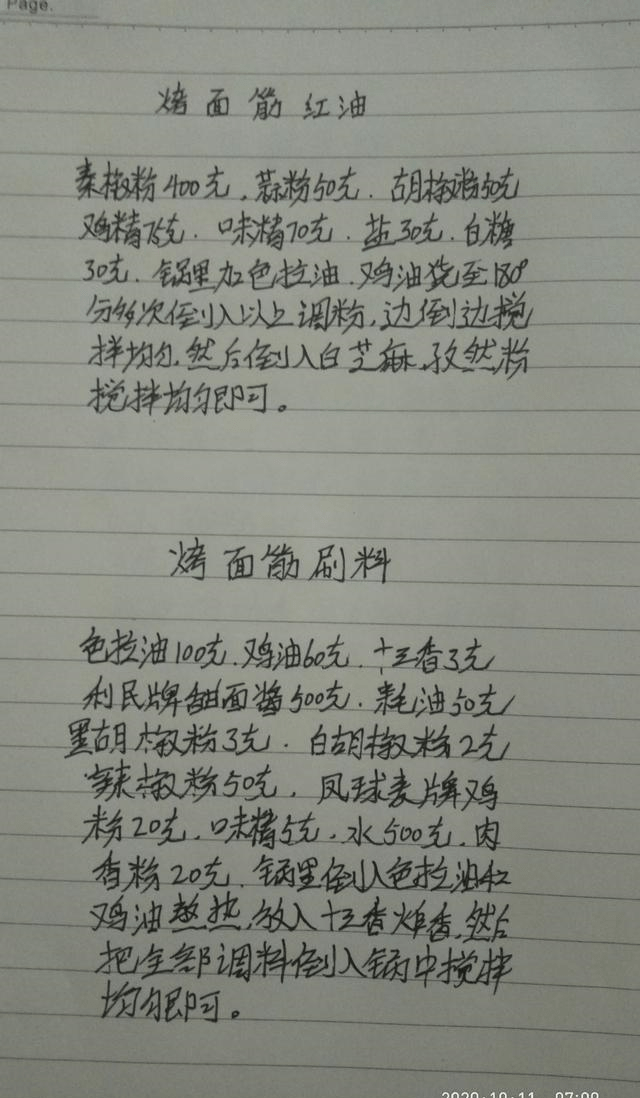 Page.
烤面筋红油
秦椒粉400克、蒜粉50克、胡椒粉50克
鸡精75克、味精70克、盐30克、白糖
30克、锅里加色拉油、鸡油烧至180°
分多次倒入以上调粉,边倒边搅
拌均匀,然后倒入白芝麻,孜然粉
搅拌均匀即可。
烤面筋刷料
色拉油100克、鸡油60克、十三香3克
利民牌甜面酱500克、耗油50克
黑胡椒粉3克、白胡椒粉2克
辣椒粉50克,凤球麦牌鸡
粉20克、味精5克、水500克、肉
香粉20克、锅里倒入色拉油和
鸡油熬热,放入十三香炸香,然后
把全部调料倒入锅中搅拌
均匀即可。